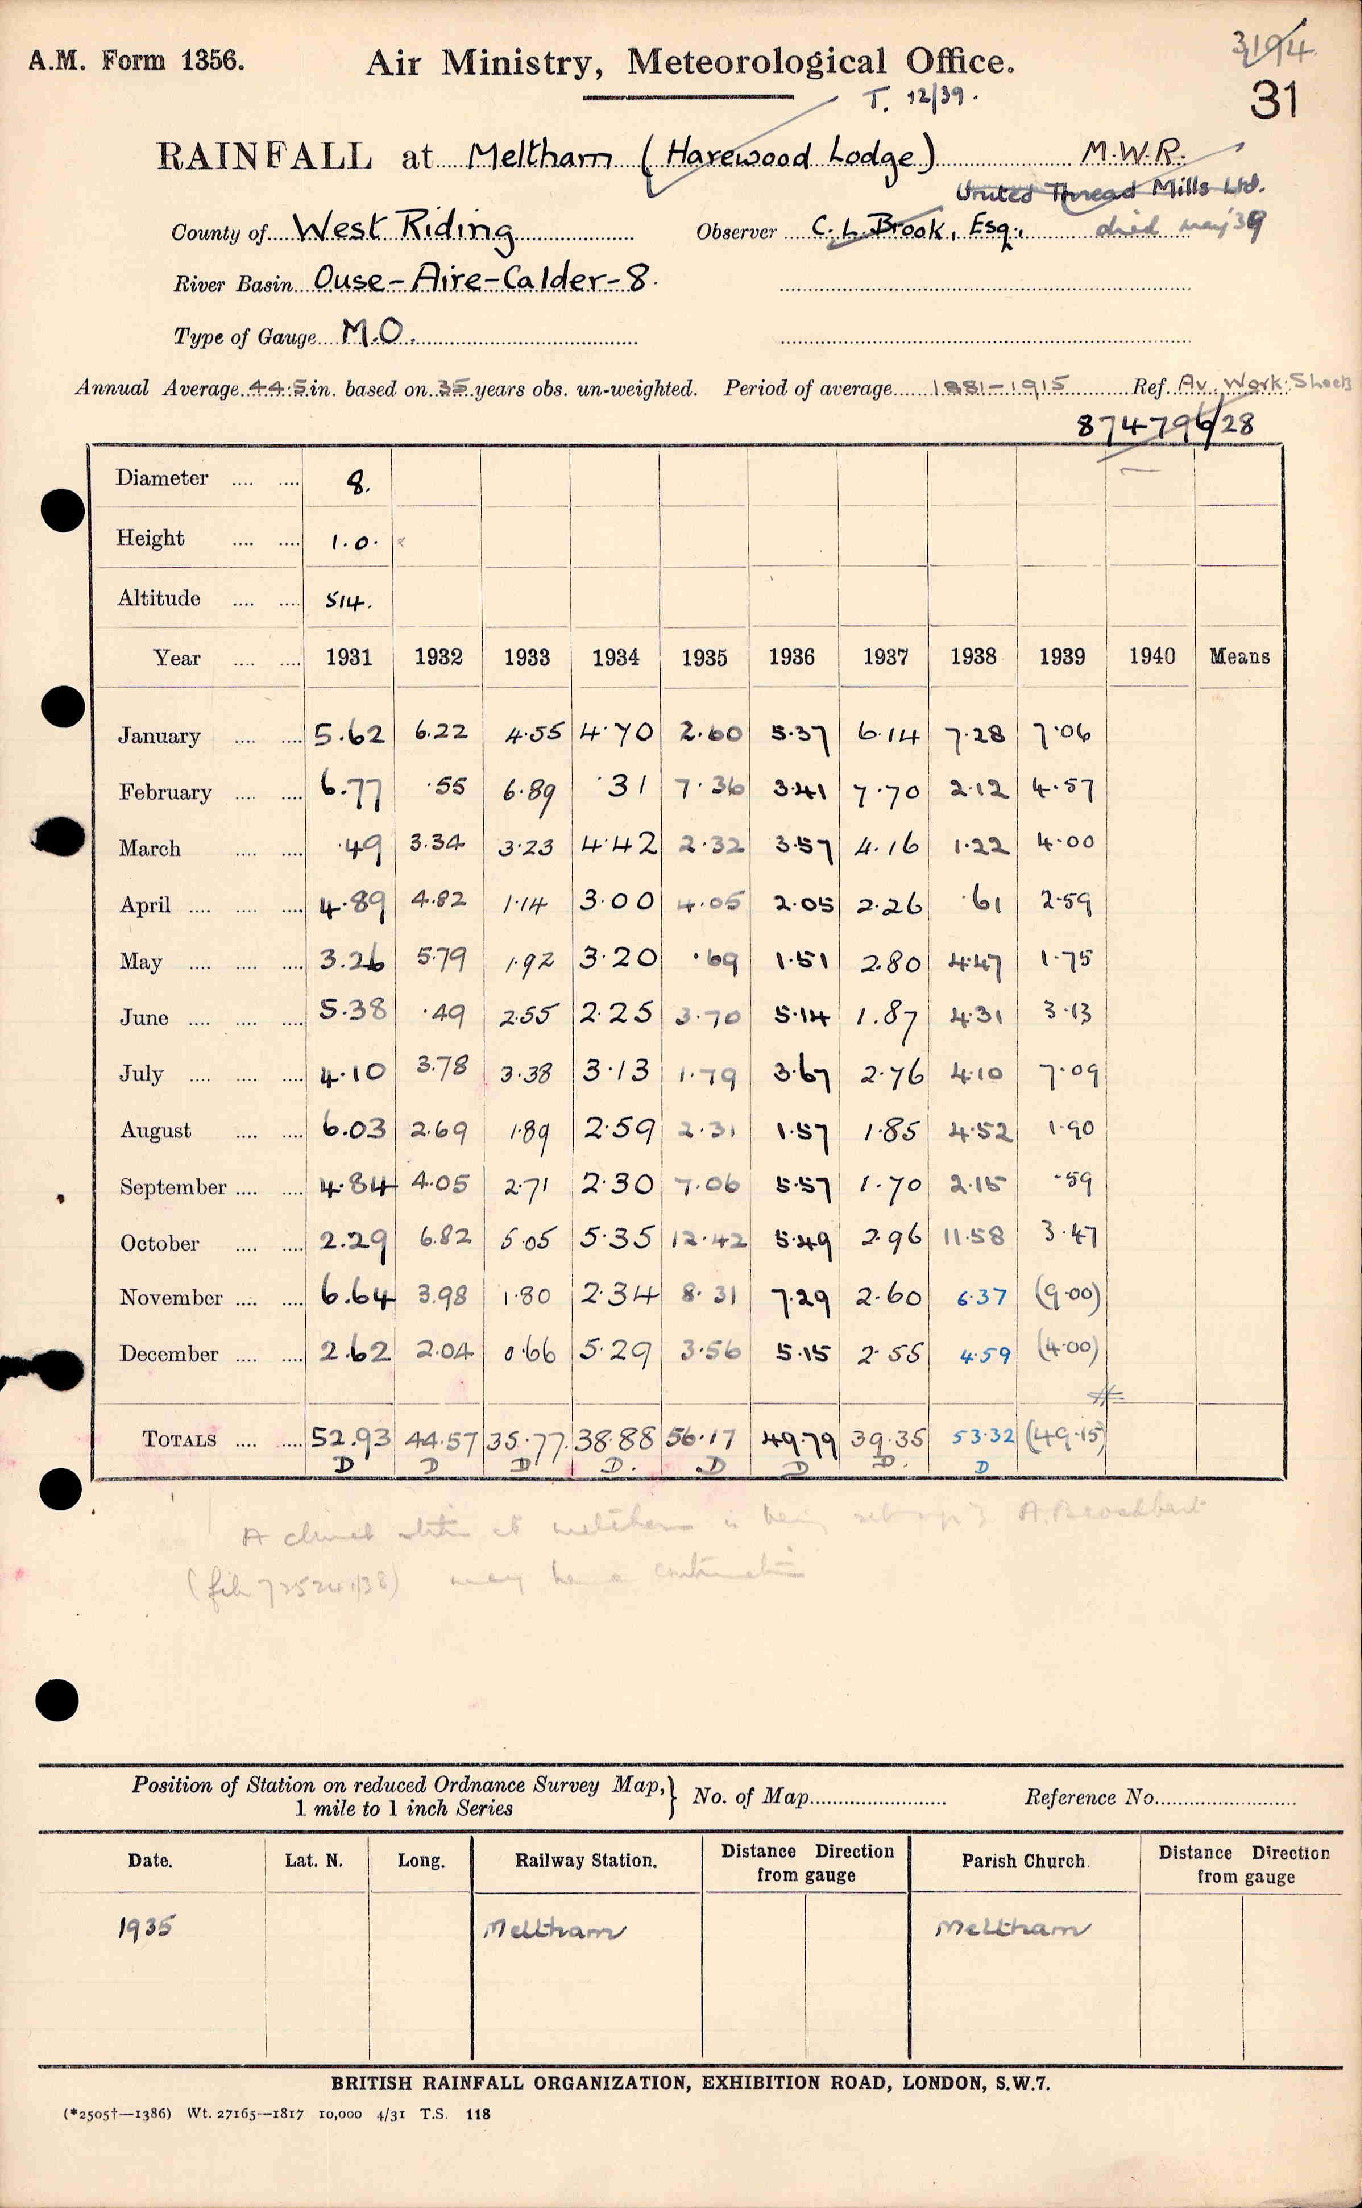 3194
A.M. Form 1356. Air Ministry, Meteorological Office. 31
T. 12/39.
RAINFALL at Meltham (Harewood Lodge) M.W.R.
United Thread Mills Ltd.
County of West Riding Observer C. L. Brook, Esq., died may '39
River Basin Ouse-Aire-Calder-8.
Type of Gauge M.O.
Annual Average 44.5 in. based on 35 years obs. un-weighted. Period of average 1881-1915 Ref. Av. Work Sheets
874796/28
Diameter 8.
Height 1.0.
Altitude 514.
Year 1931 1932 1933 1934 1935 1936 1937 1938 1939 1940 Means
January 5.62 6.22 4.55 4.70 2.60 5.37 6.14 7.28 7.06
February 6.77 .55 6.89 .31 7.36 3.41 7.70 2.12 4.57
March .49 3.34 3.23 4.42 2.32 3.57 4.16 1.22 4.00
April 4.89 4.82 1.14 3.00 4.05 2.05 2.26 .61 2.59
May 3.26 5.79 1.92 3.20 .69 1.51 2.80 4.47 1.75
June 5.38 .49 2.55 2.25 3.70 5.14 1.87 4.31 3.13
July 4.10 3.78 3.38 3.13 1.79 3.67 2.76 4.10 7.09
August 6.03 2.69 1.89 2.59 2.31 1.57 1.85 4.52 1.90
September 4.84 4.05 2.71 2.30 7.06 5.57 1.70 2.15 .59
October 2.29 6.82 5.05 5.35 12.42 5.49 2.96 11.58 3.47
November 6.64 3.98 1.80 2.34 8.31 7.29 2.60 6.37 (9.00)
December 2.62 2.04 0.66 5.29 3.56 5.15 2.55 4.59 (4.00)
TOTALS 52.93 44.57 35.77 38.88 56.17 49.79 39.35 53.32 (49.15)
D D D D. D D D. D
A climat station at meltham is being set up
may be a continuation
Position of Station on reduced Ordnance Survey Map, } No. of Map Reference No.
1 mile to 1 inch Series
Date. Lat. N. Long. Railway Station. Distance Direction from gauge Parish Church Distance Direction from gauge
1935 Meltham Meltham
BRITISH RAINFALL ORGANIZATION, EXHIBITION ROAD, LONDON, S.W.7.
(*2505†—1386) Wt. 27165—1817 10,000 4/31 T.S. 118